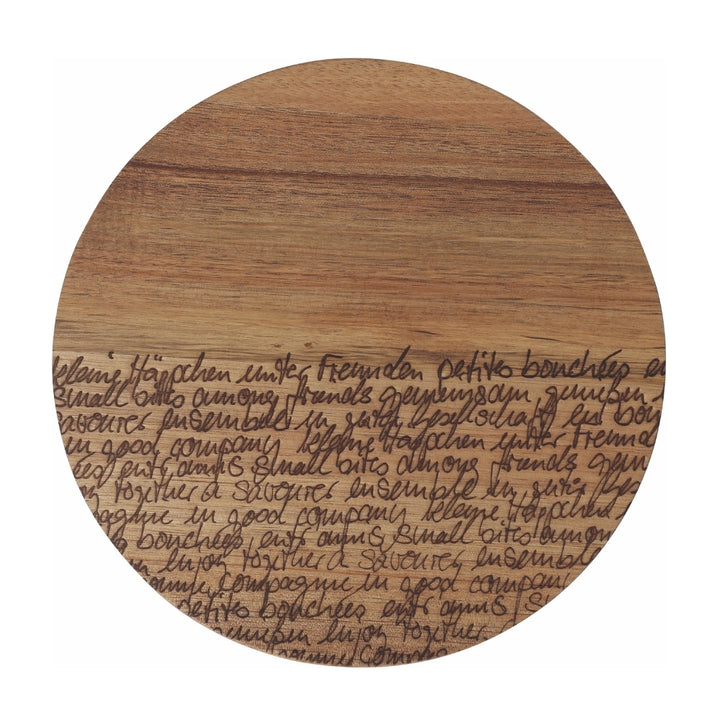 kleine Häppchen unter Freunden petites bouchées en
small bites among friends gemeinsam genießen
savourer ensemble in guter Gesellschaft en bon
in good company kleine Häppchen unter Freund
ées entr amis small bites among friends gem
together à savourer ensemble in guter Gesel
pagnie in good company kleine Häppchen
bouchées entr amis small bites among
enjoy together à savourer ensemble
bonne compagnie in good company
petites bouchées entr amis s
genießen enjoy together
bonne compag